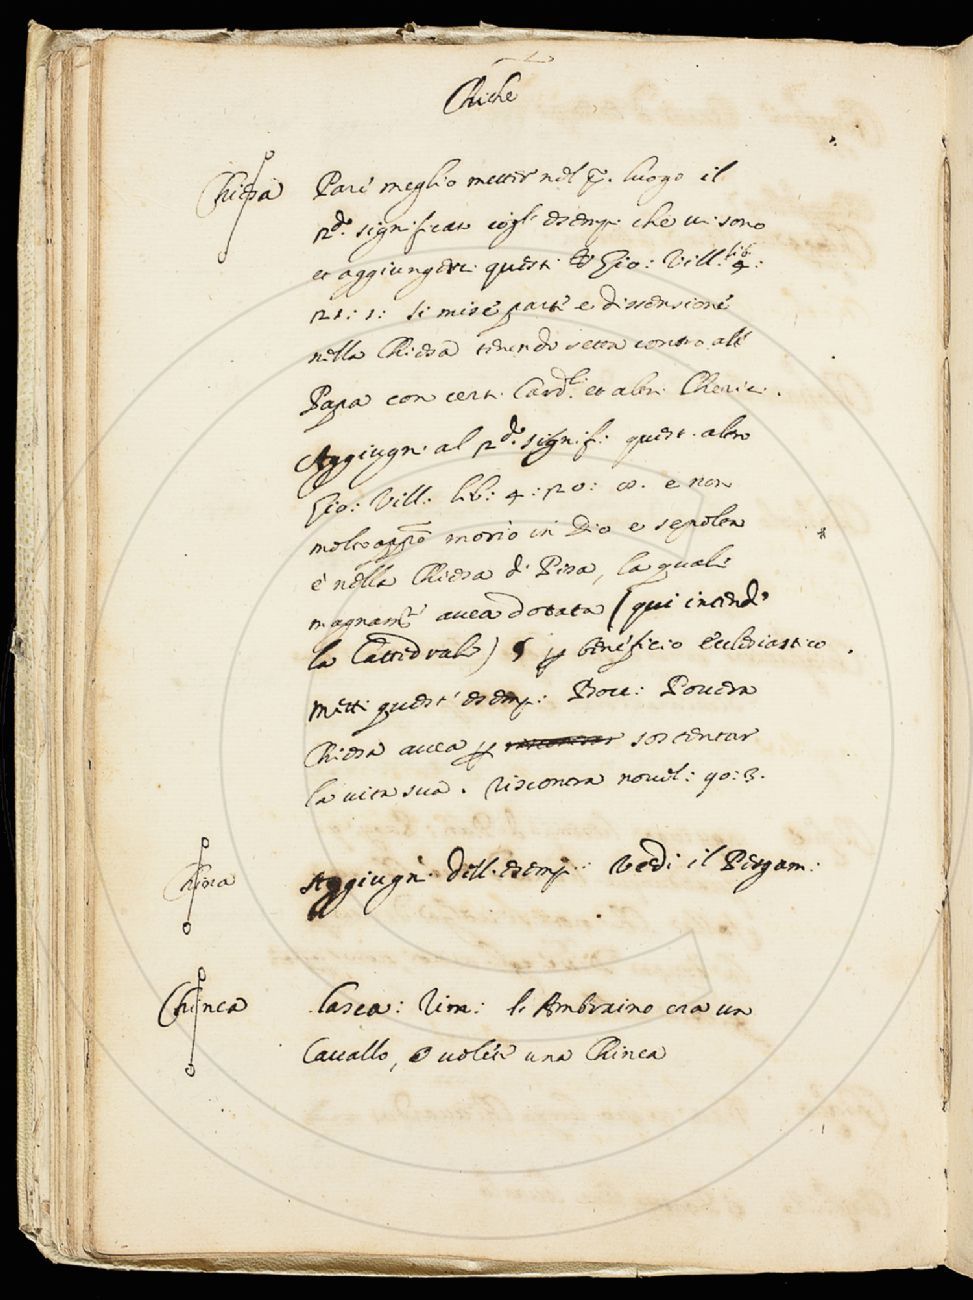 Chiche
Chiesa Par meglio metter nel p.º luogo il
2.dº significato cogl' esempi che vi sono
et aggiungervi questi Gio: Vill: lib: 4:
21: 1: si mise parte e dissensione
nella Chiesa tenendo setta contro all
Papa con certi Card.li et altri Cherici.
Aggiugni al 2.dº signif: quest. altro
Gio: Vill: lib: 4: 20: e non
molto appº morìo in Dio e sepolta
è nella Chiesa di Pisa, la quale
magnam.te avea dotata (qui intende
la Cattedrale) p beneficio Ecclesiastico.
metti quest' esemp: Bocc: Povera
Chiesa avea p sostentar
la vita sua. riscontra novel: 90: 3.
China Aggiugni dell. esemp: Vedi il Pergam:
Chinea Lasca: Rim: l. Ambraino era un
Cavallo, o volete una Chinea